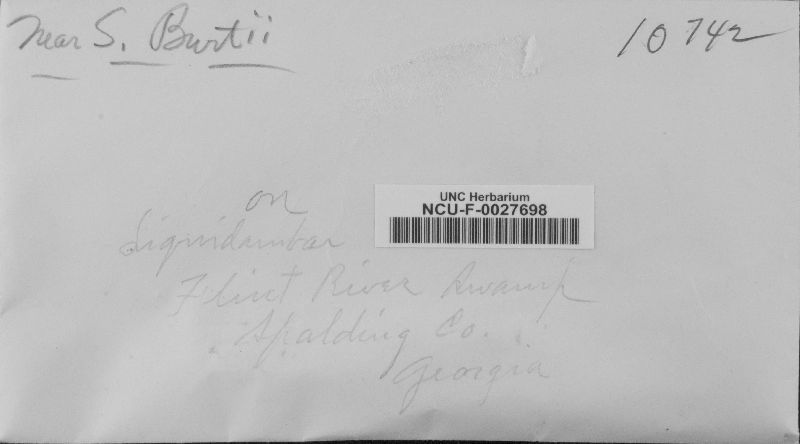 Near S. Burtii
10742
UNC Herbarium
NCU-F-0027698
on
Liquidambar
Flint River Swamp
Spalding Co.
Georgia